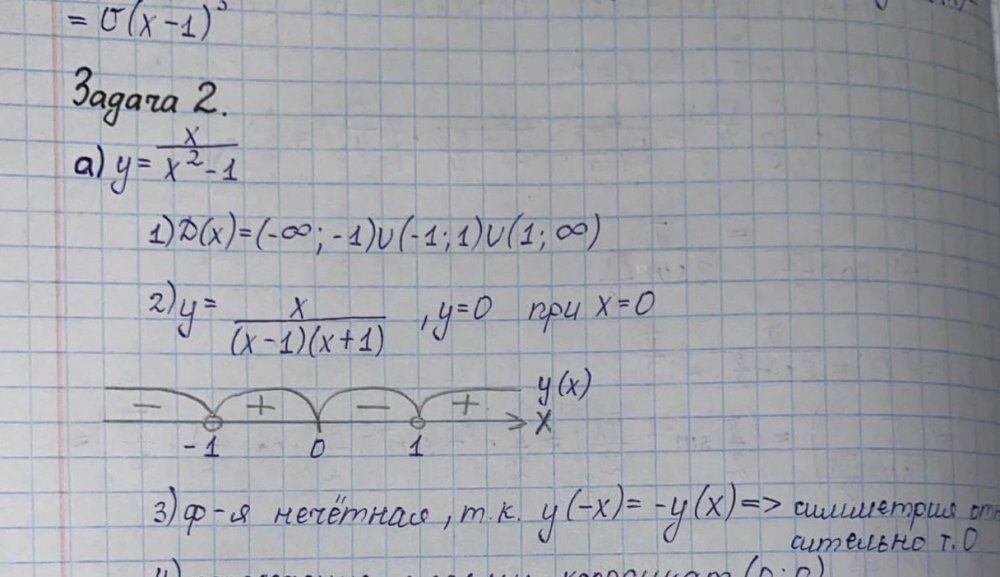 = (x-1)³
Задача 2.
а) y = x / x² - 1
1) D(x) = (-∞; -1)∪(-1; 1)∪(1; ∞)
2) y = x / (x-1)(x+1) , y=0 при x=0
− + − + y(x)
-1 0 1 X
3) ф-я нечётная, т.к. y(-x) = -y(x) => симметрия отн
сительно т.О
4) координат (0;0)